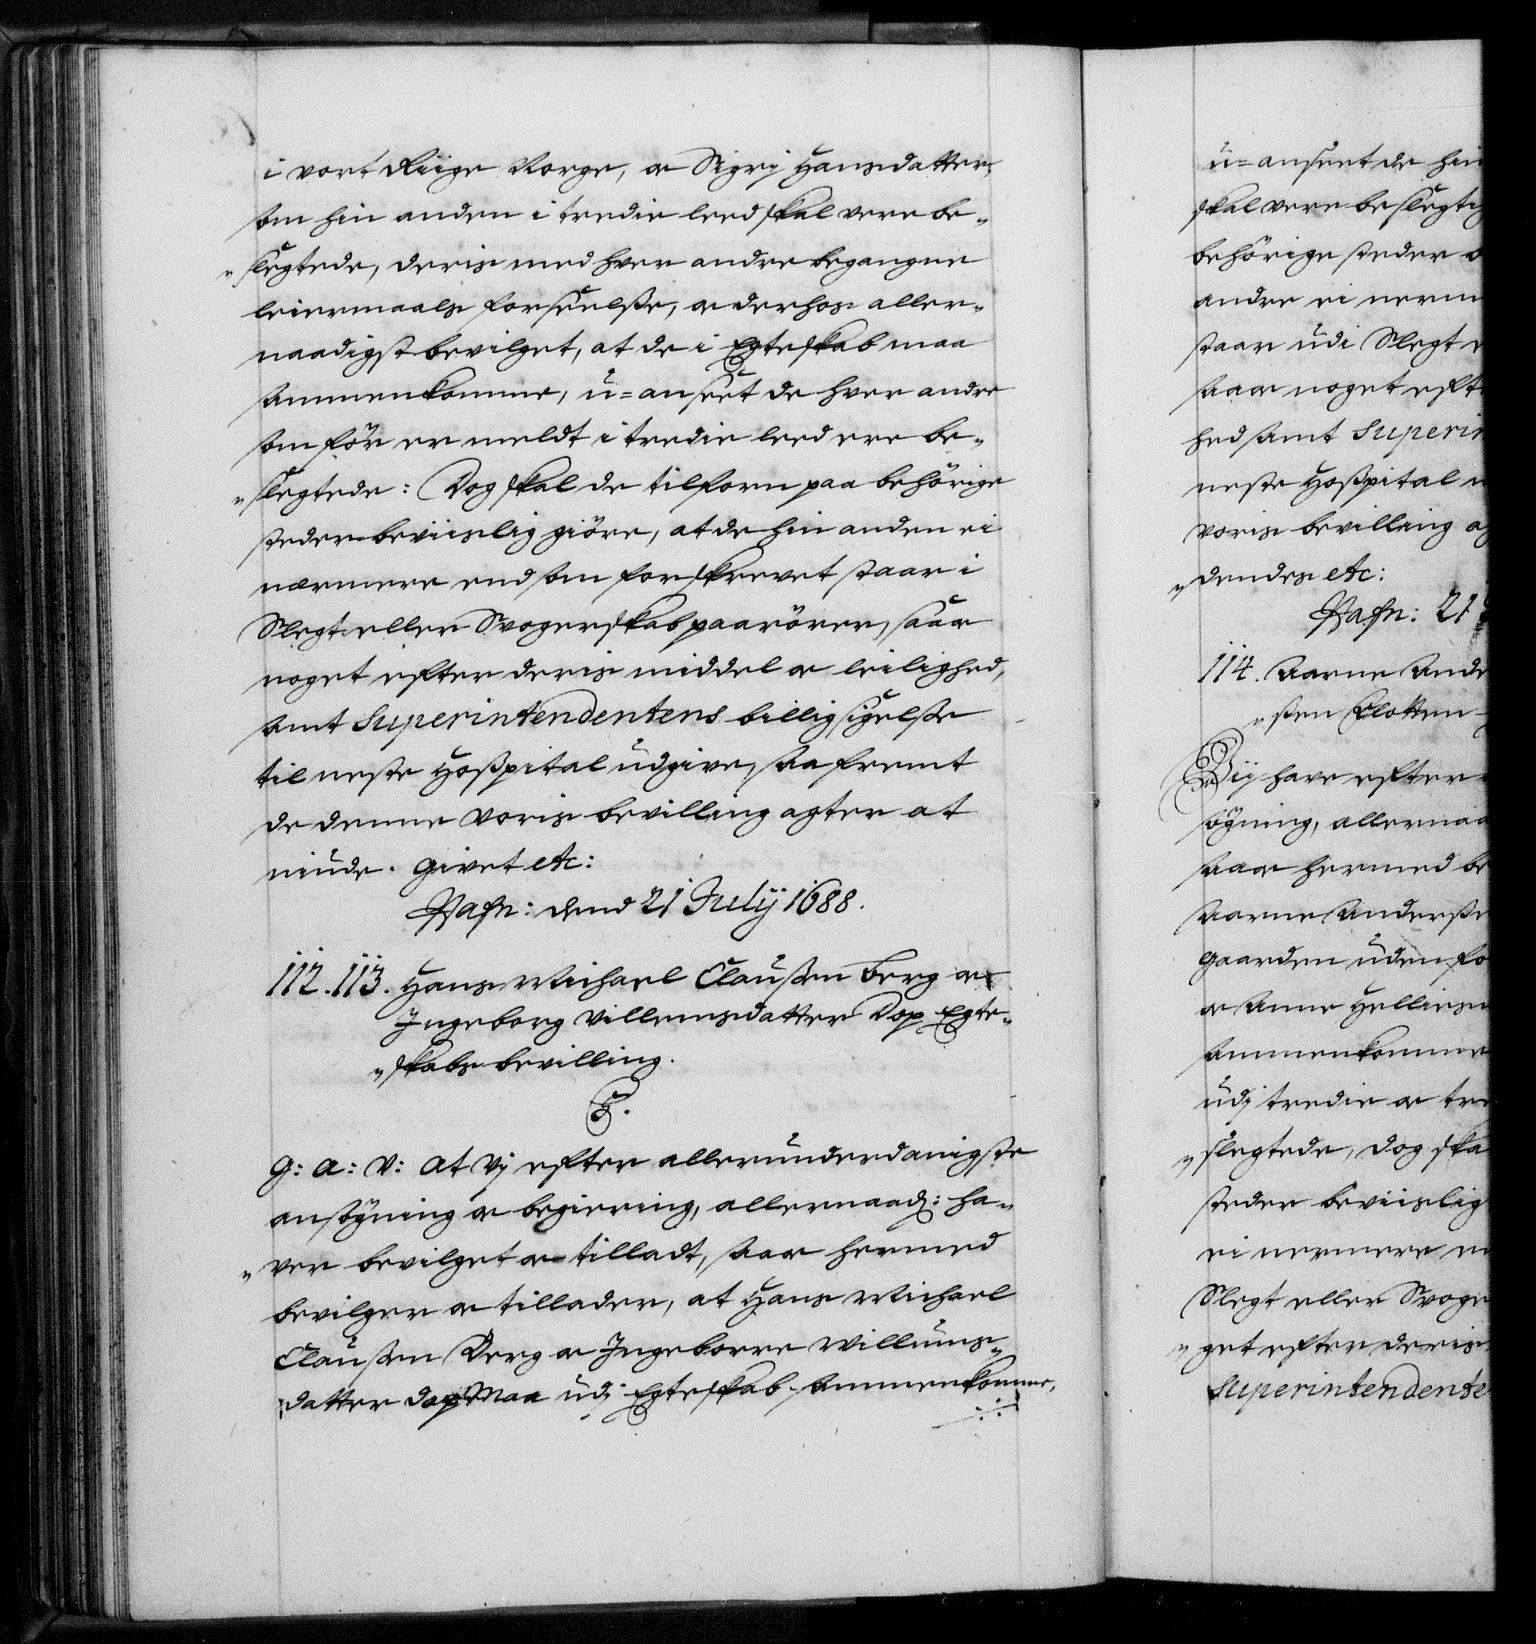 i vort Riige Norge, oc Sigrj Hansdatter,
som hin anden i tredie leed skal vere be-
"slegtede, deris med hver andre begangne
leiermaals forseelße, oc derhos aller-
naadigst bevilget, at de i Egteskab maa
sammenkomme, u=anseet de hver andre
som för er meldt i tredie leed ere be-
"slegtede: Dog skal de tilforn paa behörige
steder beviislig giöre, at de hin anden ei
nærmere end som forskrevet staar i
Slegt eller Svogerskab paarörer, saa oc
noget efter deris middel oc leilighed,
samt Superintendentens billig sigelße
til neste Hoßpital udgive, saa fremt
de denne voris bevilling agter at
niude. Givet etc:
Hafn: dend 21 July 1688.
112. 113. Hans Michael Claußen Berg oc
Ingeborg Villemsdatter Dop Egte-
"skabs bevilling.
G: A: V: At Vj efter allerunderdanigste
ansögning oc begiering, allernaad: ha-
"ver bevilget oc tilladt, saa oc hermed
bevilger oc tillader, at Hans Michael
Claußen Berg oc Ingeborre Willums-
datter Dop Maa udj Egteskab sammenkomme,
u=anseet de hin
skal vere beslegtig
behörige steder
andre ei nerm
staar udi Slegt
saa oc noget eft
hed samt Superin
neste Hoßpital
voris bevilling ag
"dendes etc:
Hafn: 21
114. Aarne Ande
"sen Clotten
Vii have efter
sögning, allernaa
saa oc hermed be
Aarne Anderße
Gaarden uden fo
oc Anne Hellies
sammenkomme
udj tredie oc tre
"slegtede, dog ska
steder beviislig
ei nermere en
Slegt eller Svoge
"get efter deris
Superintendente